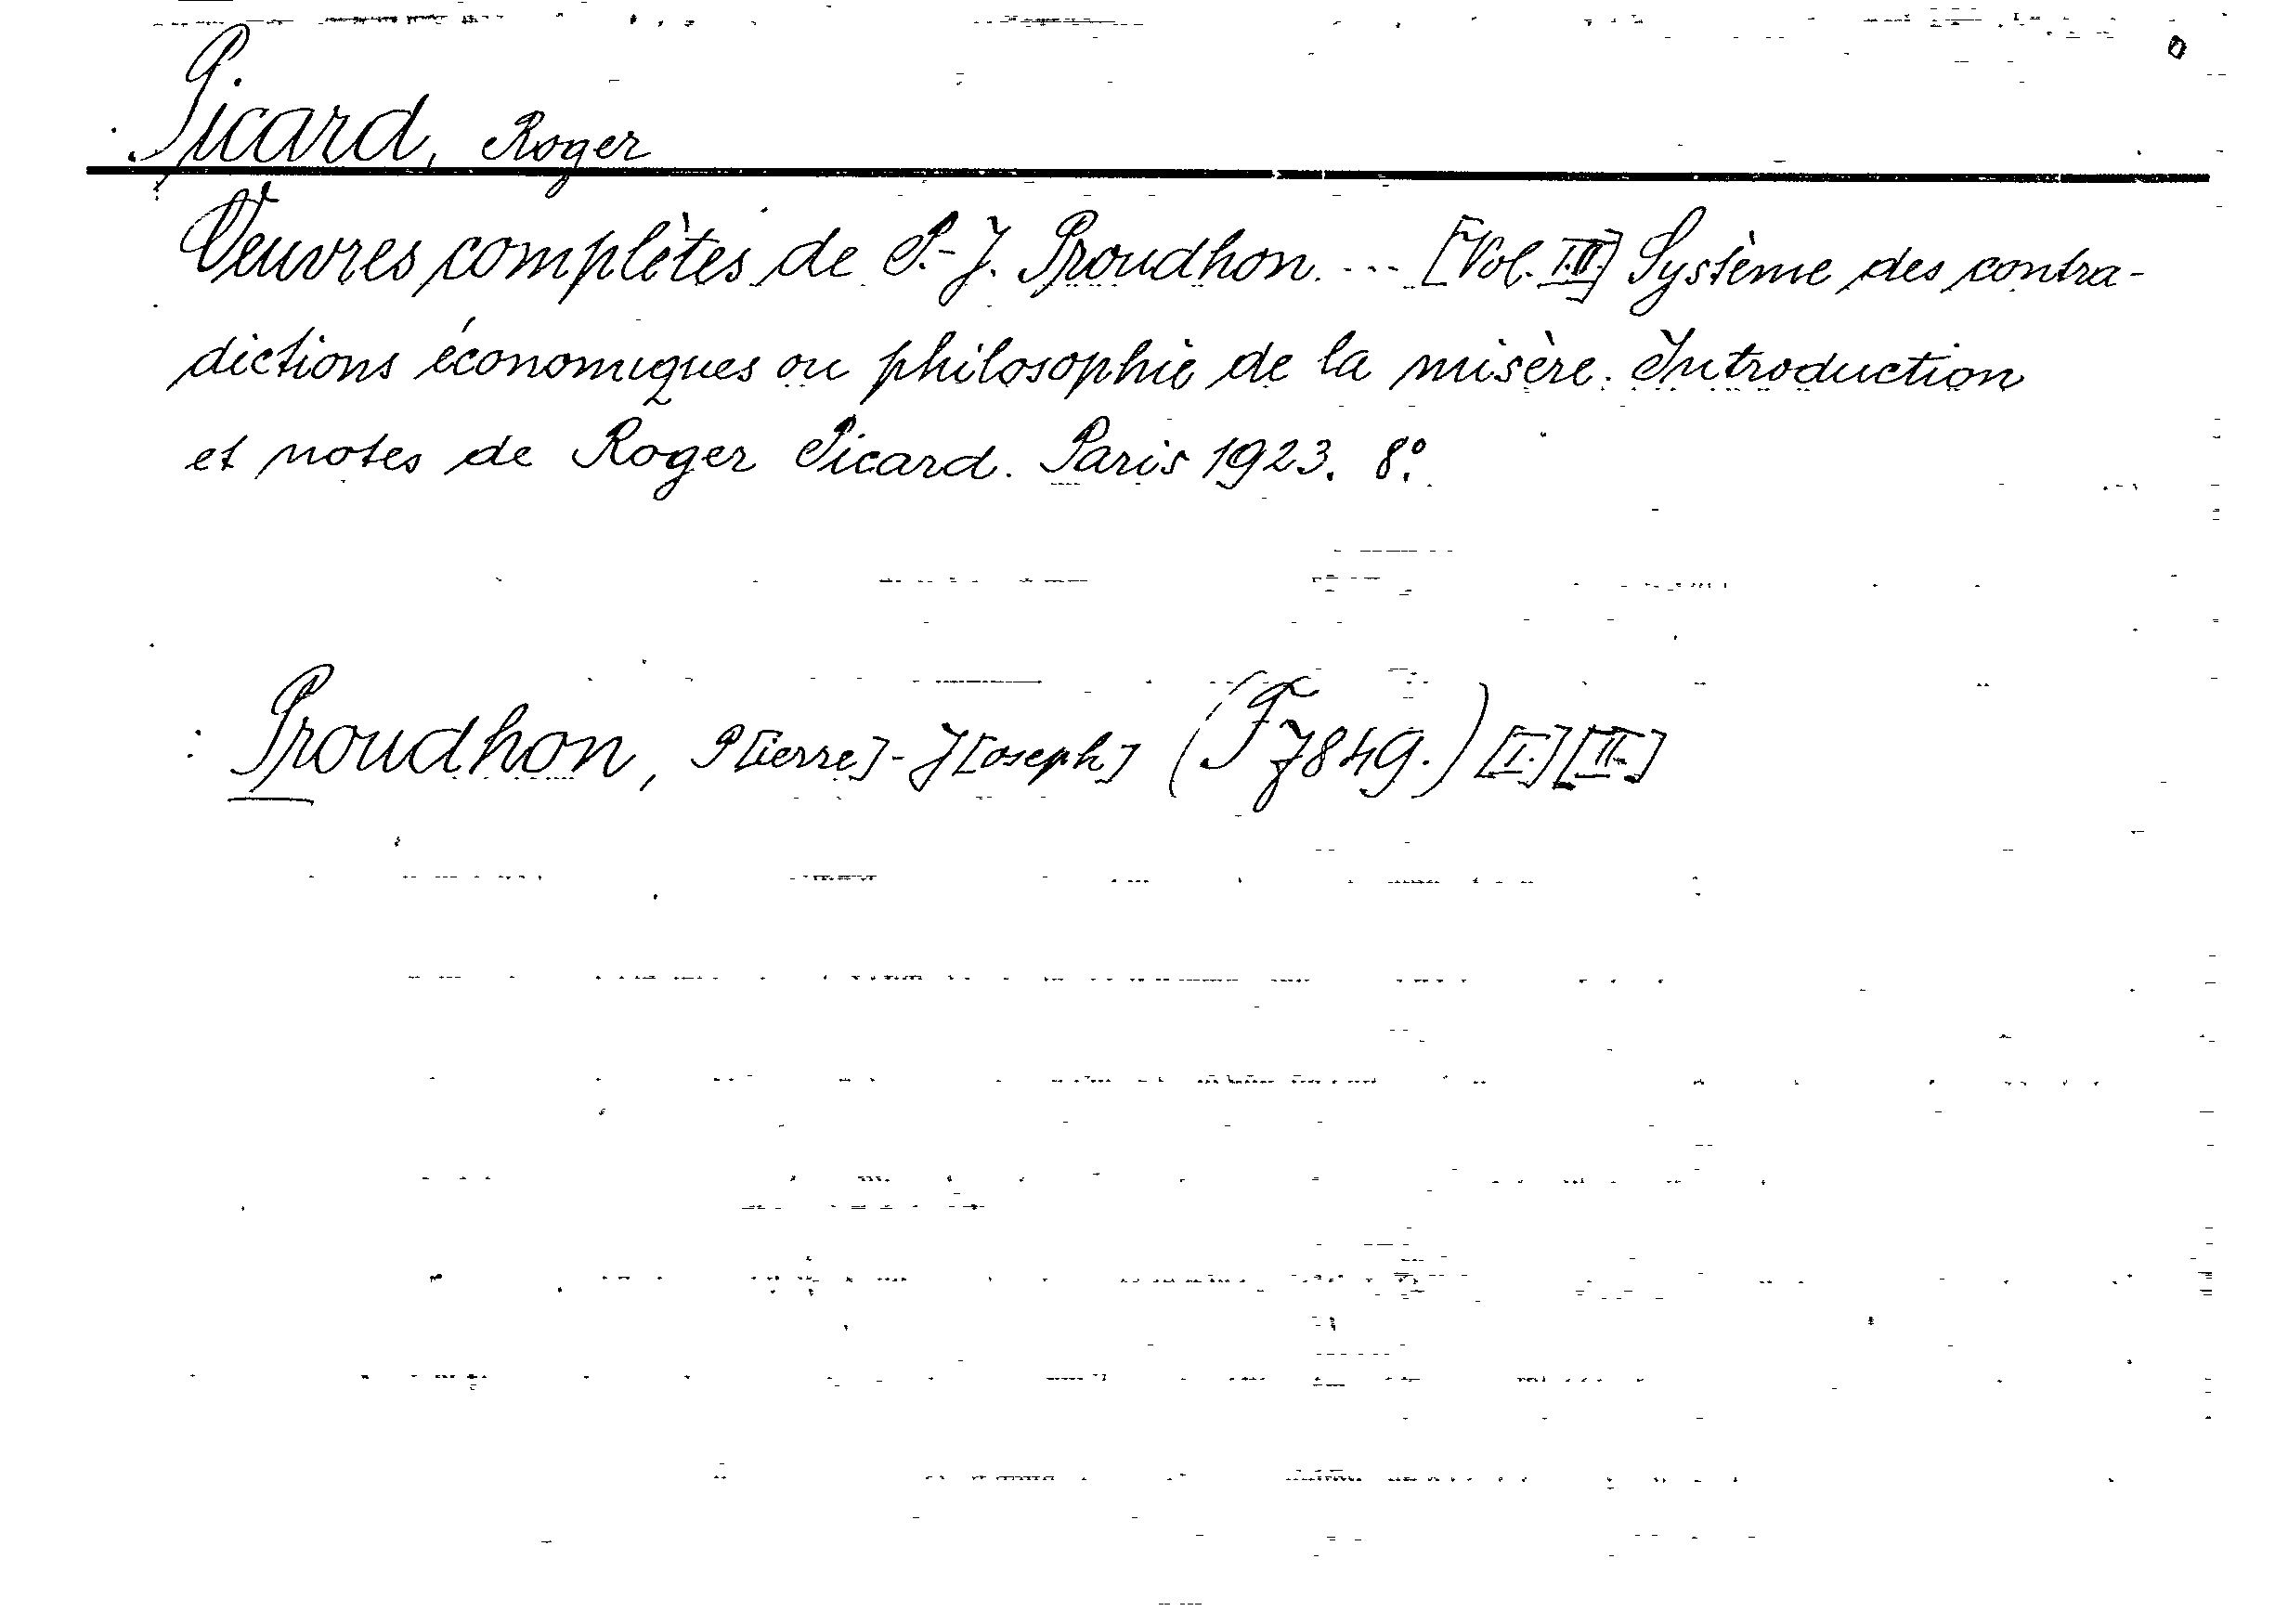 Picard, Roger
Oeuvres complètes de P.-J. Proudhon. ... [Vol. I.II.] Système des contra-
dictions économiques ou philosophie de la misère. Introduction
et notes de Roger Picard. Paris 1923. 8º.
: Proudhon, P[ierre]-J[oseph] (F7849.) [I.][II.]